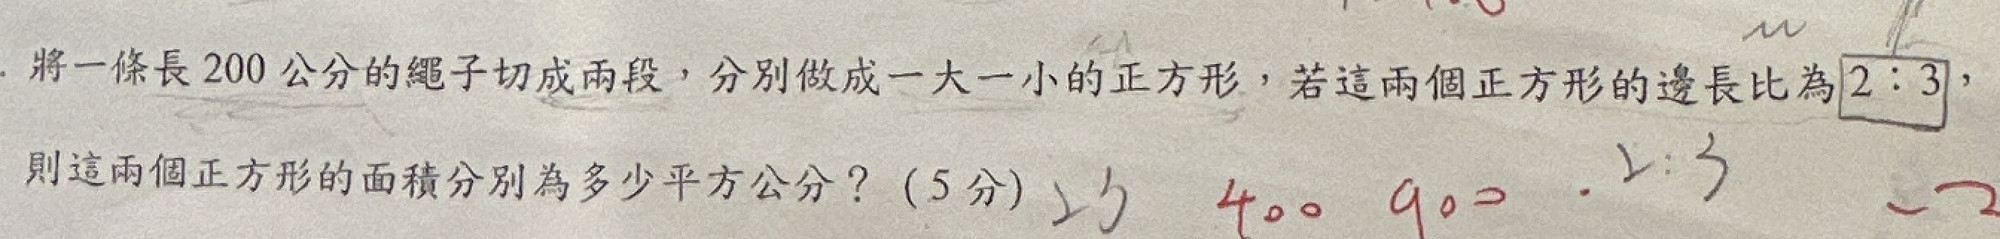 將一條長 200 公分的繩子切成兩段，分別做成一大一小的正方形，若這兩個正方形的邊長比為 2：3，
則這兩個正方形的面積分別為多少平方公分？（5 分） 400 900 2:3